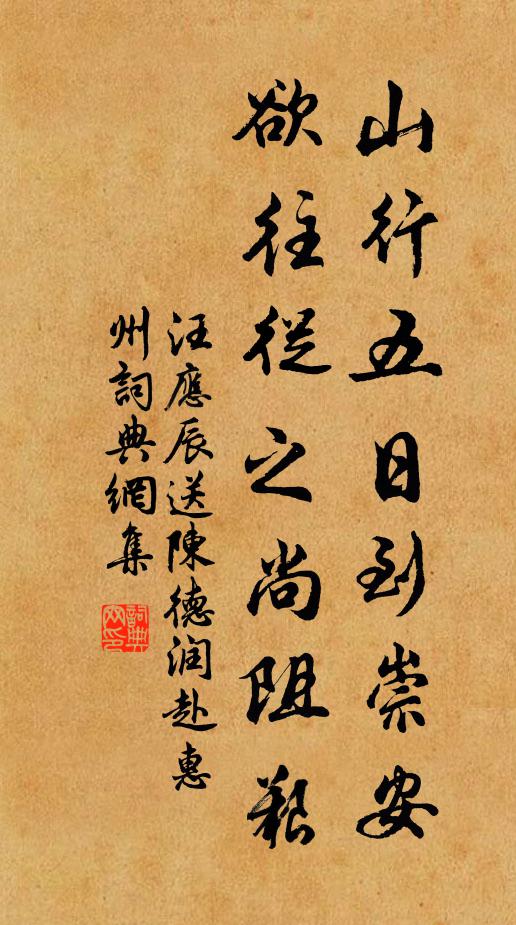 山行五日到崇安
欲往從之尚阻艱
汪應辰送陳德潤赴惠
州詞典網集
詞典網印